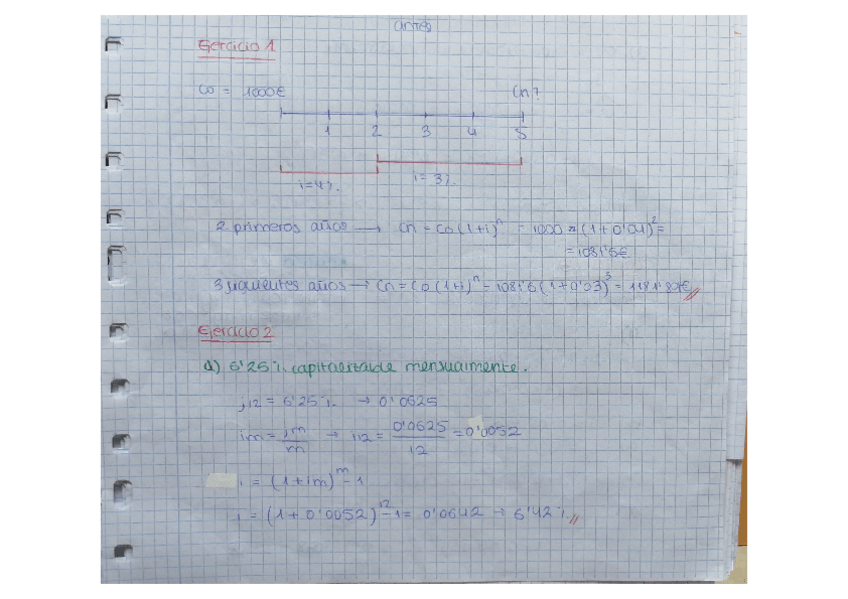 antes
Ejercicio 1
Co = 1000€ Cn?
1 2 3 4 5
i=4%. i= 3%.
2 primeros años → Cn = Co (1+i)^n = 1000 * (1+0'04)^2 =
= 1081'6€
3 siguientes años → Cn = Co (1+i)^n = 1081'6 (1+0'03)^3 =
Ejercicio 2
6'25%. capitalizable mensualmente.
j12 = 6'25%. → 0'0625
im = jm/m → i12 = 0'0625/12 = 0'0052
i = (1+im)^m - 1
i = (1+0'0052)^12 - 1 = 0'0642 → 6'42%.